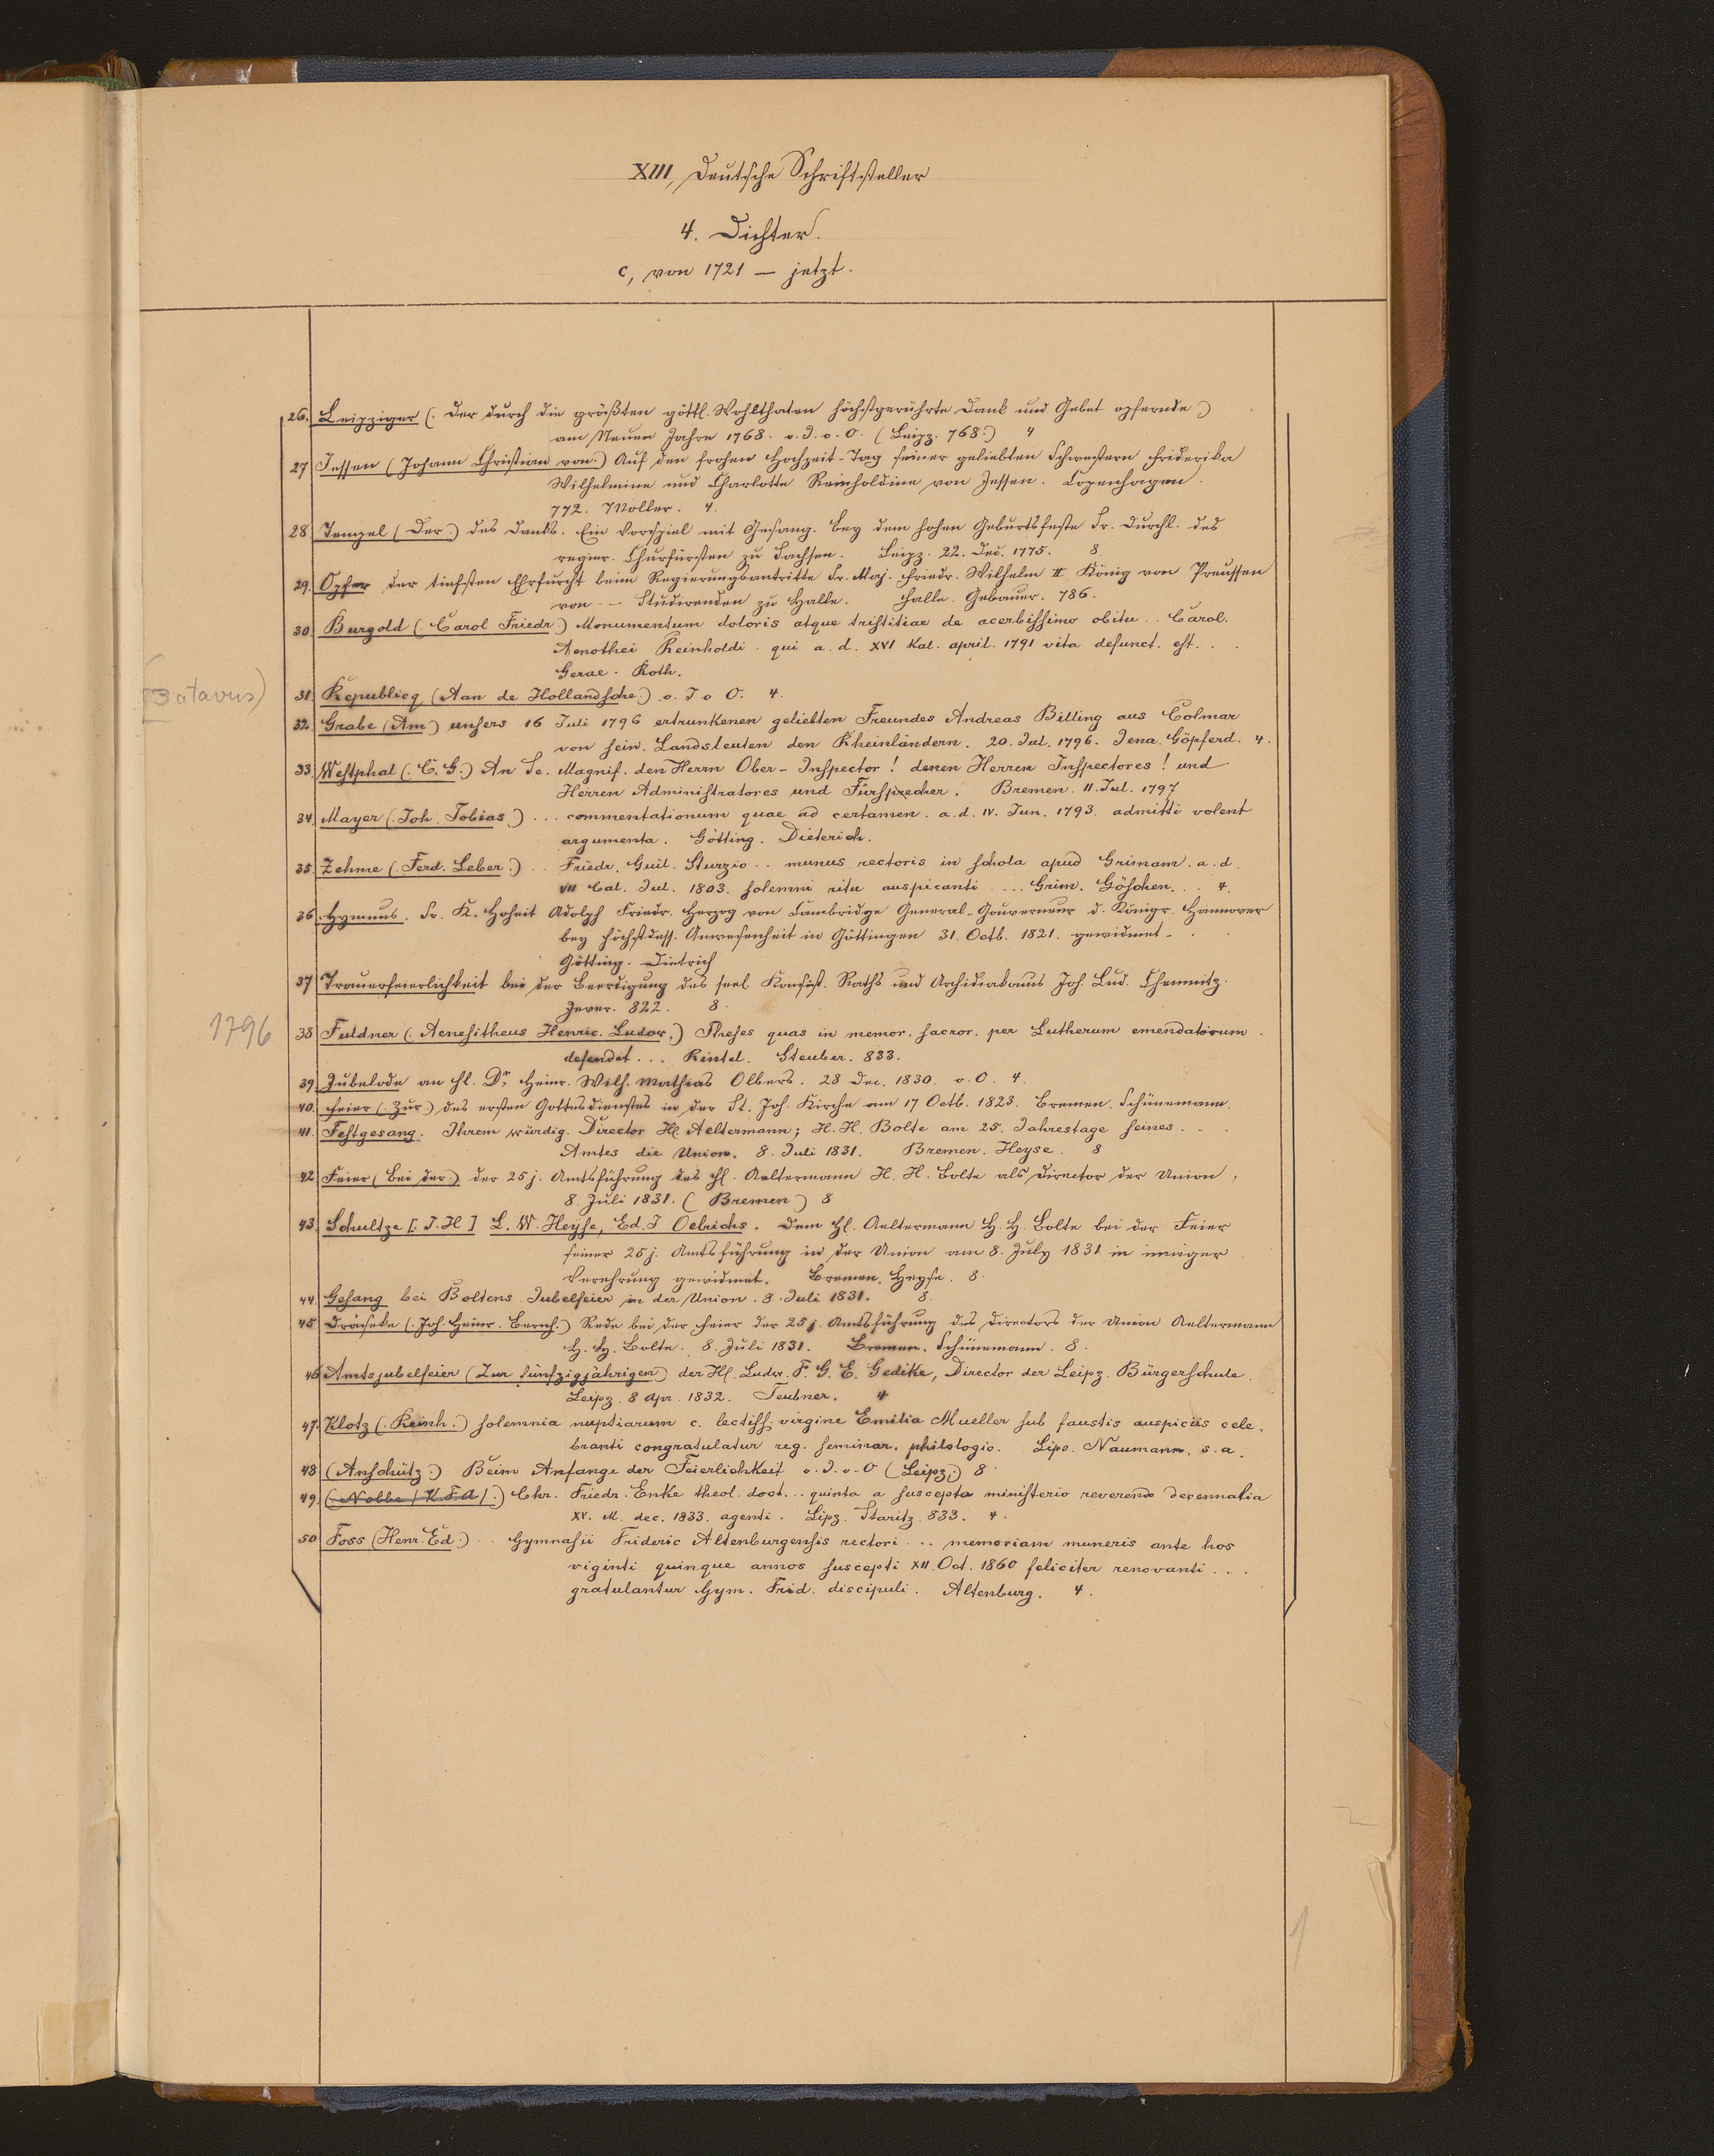 XIII, Deutsche Schriftsteller
4. Dichter.
c, von 1721 — jetzt.
26. Leipziger (: Der durch die größten göttl. Wohlthaten höchstgerührte Dank und Gebet opfernde :)
am Neuen Jahre 1768. o. J. o. O. (Leipz. 768:) 4
27 Jessen (Johann Christian von:) Auf den frohen Hochzeit-Tag seiner geliebten Schwestern Friderika
Wilhelmine und Charlotte Reinholdine von Jessen. Copenhagen.
772. Möller. 4.
28 Tempel (Der:) des Danks. Ein Vorspiel mit Gesang. Bey dem hohen Geburtsfeste Sr. Durchl. des
regier. Churfürsten zu Sachsen. Leipz. 22. Dec. 1775. 8
29. Opfer der tiefsten Ehrfurcht beim Regierungsantritte Sr. Maj. Friedr. Wilhelm II König von Preussen
von — Studirenden zu Halle. Halle. Gebauer. 786.
30. Burgold (: Carol Friedr :) Monumentum doloris atque tristitiae de acerbissimo obitu . . Carol.
Aenothei Reinholdi . qui a. d. XVI Kal. april. 1791 vita defunct. est. . .
Gerae. Roth.
(Batavus)
31. Republicq (Aan de Hollandsche:) o. J o O. 4.
32. Grabe (Am:) unsers 16 Juli 1796 ertrunkenen geliebten Freundes Andreas Billing aus Colmar
von sein. Landsleuten den Rheinländern. 20. Jul. 1796. Jena. Göpferd. 4.
33. Westphal (: C. G:) An Se. Magnif. den Herrn Ober-Inspector! denen Herren Inspectores! und
Herren Administratores und Fürsprecher. Bremen. 11. Jul. 1797
34. Mayer (: Joh. Tobias :) . . . commentationum quae ad certamen. a. d. IV. Jun. 1793. admitti volent
argumenta. Götting. Dieterich.
35. Zehme (: Ferd. Leber :) . . Friedr. Guil. Sturzio . . munus rectoris in schola apud Grimam. a. d.
VII Cal. Jul. 1803. solemni ritu auspicanti . . . . Grim. Göschen. . . 4.
36. Hymnus. Sr. K. Hoheit Adolph Friedr. Herzog von Cambridge General-Gouverneur d. Königr. Hannover
bey höchstdess. Anwesenheit in Göttingen 31. Octb. 1821. gewidmet . .
Götting. Dietrich
37 Trauerfeierlichkeit bei der Beerdigung des seel. Konsist. Raths und Archidiakonus Joh. Lud. Chemnitz.
Jever. 822. 8.
1796
38 Fuldner (: Aenesitheus Henric. Ludov:) Theses quas in memor. sacror. per Lutherum emendatorum.
defendet . . . Rintel. Steuber. 833.
39. Jubelode an H. Dr. Heinr. Wilh. Mathias Olbers. 28 Dec. 1830. o. O. 4.
40. Feier (: Zur:) des ersten Gottesdienstes in der St. Joh. Kirche am 17 Octb. 1823. Bremen. Schünemann.
41. Festgesang. Ihrem würdig. Director H. Aeltermann; H. H. Bolte am 25. Jahrestage seines . . .
Amtes die Union. 8. Juli 1831. Bremen. Heyse. 8
42 Feier (Bei der:) der 25 j. Amtsführung des H. Aeltermann H. H. Bolte als Director der Union,
8. Juli 1831. (Bremen) 8
43. Schultze [: J. H] L. W. Heyse, Ed. J Oelrichs. Dem H. Aeltermann H. H. Bolte bei der Feier
seiner 25 j. Amtsführung in der Union am 8. July 1831 in inniger
Verehrung gewidmet. Bremen. Heyse. 8.
44. Gesang bei Boltens Jubelfeier in der Union. 8. Juli 1831. 8.
45 Dräseke (: Joh. Heinr. Bernh.) Rede bei der Feier der 25 j. Amtsführung des Directors der Union Aeltermann
H. H. Bolte. 8. Juli 1831. Bremen. Schünemann. 8.
46 Amtsjubelfeier (Zur fünfzigjährigen) der H. Ludw. F. G. E. Gedike, Director der Leipz. Bürgerschule.
Leipz. 8 Apr. 1832. Teubner. 4
47. Klotz (: Reinh.) solemnia nuptiarum c. lectiss. virgine Emilia Mueller sub faustis auspiciis cele-
branti congratulatur reg. seminar. philologic. Lips. Naumann. s. a.
48 (Anschütz:) Beim Anfange der Feierlichkeit o. J. o. O (Leipz:) 8.
49. (: Nobbe / K. F. A / :) Chr. Friedr. Enke theol. doct. . . quinta a suscepto ministerio reverendo decennalia
XV. M. dec. 1833. agenti. Lipz. Staritz. 833. 4.
50 Foss (Henr. Ed:) . . Gymnasii Frideric Altenburgensis rectori . . . memoriam muneris ante hos
viginti quinque annos suscepti XII. Oct. 1860 feliciter renovanti . . .
gratulantur Gym. Frid. discipuli. Altenburg. 4.